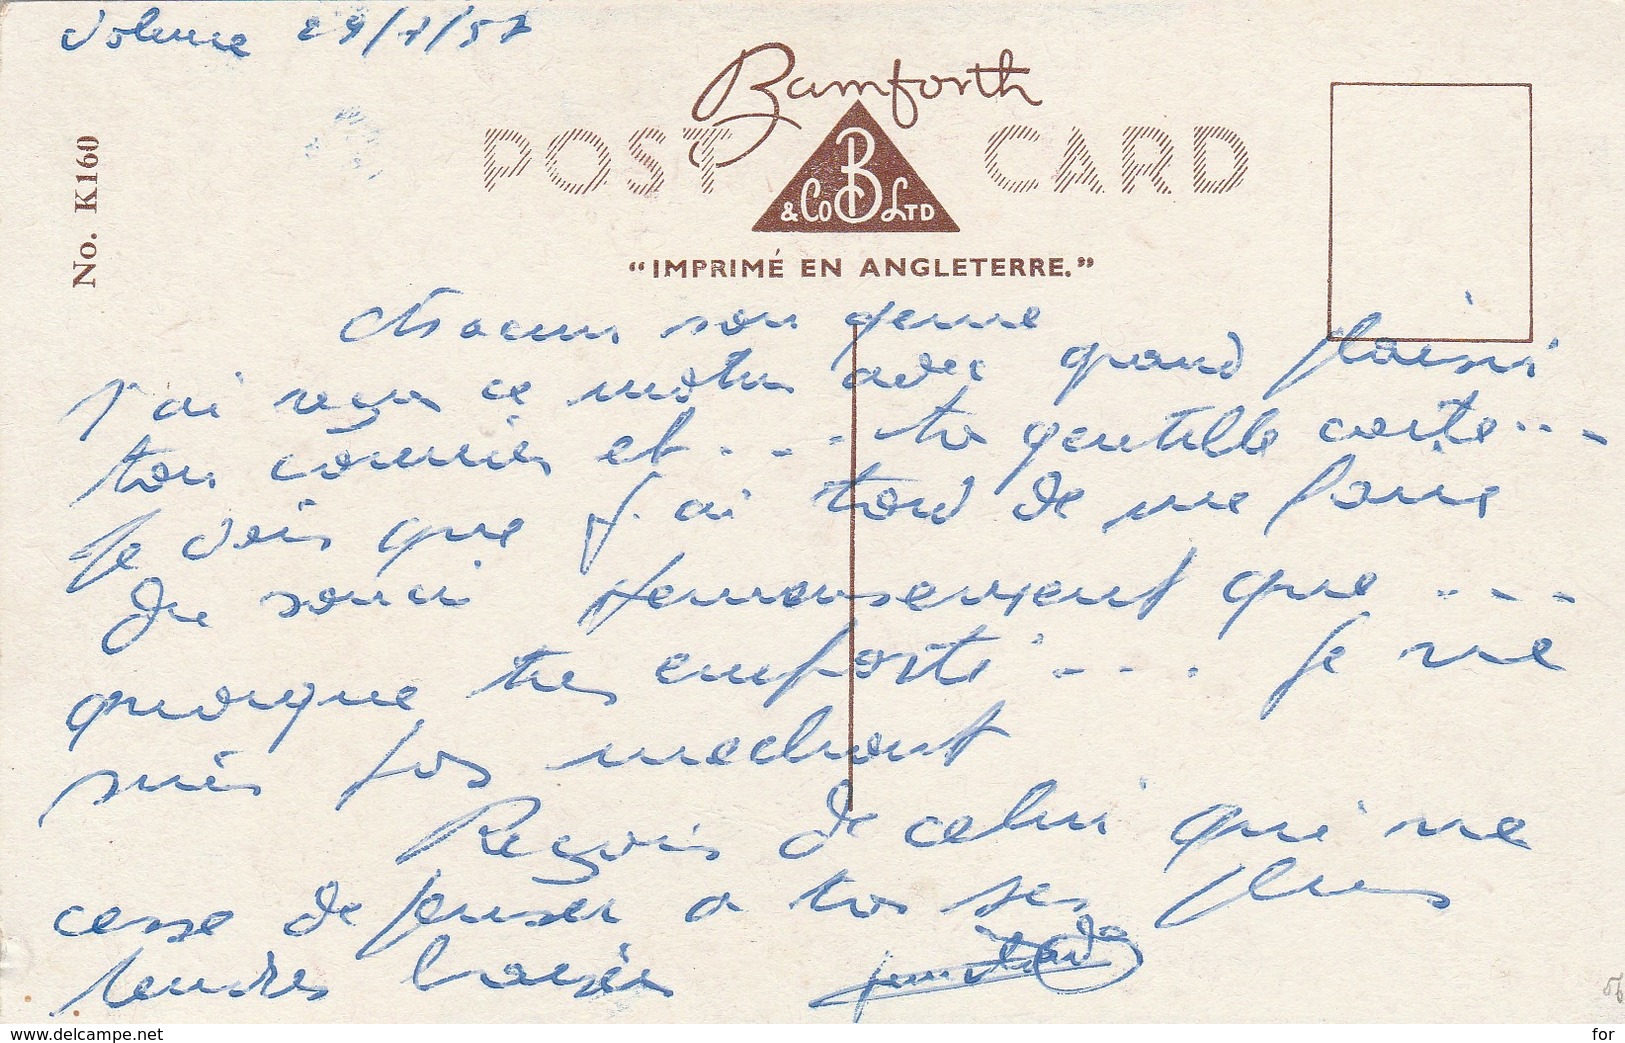 29/7/57
Bamforth
POST CARD
B
& Co LTD
No. K160
"IMPRIMÉ EN ANGLETERRE."
Chacun son genre
J'ai reçu ce matin avec grand plaisir
ton courrier et . . . ta gentille carte . . .
Je vois que j'ai tord de me faire
du souci heureusement que . . .
quoique très emporté . . . je ne
suis pas mechant
Reçois de celui qui ne
cesse de penser a toi ses plus
tendres baisers
56
www.delcampe.net
for